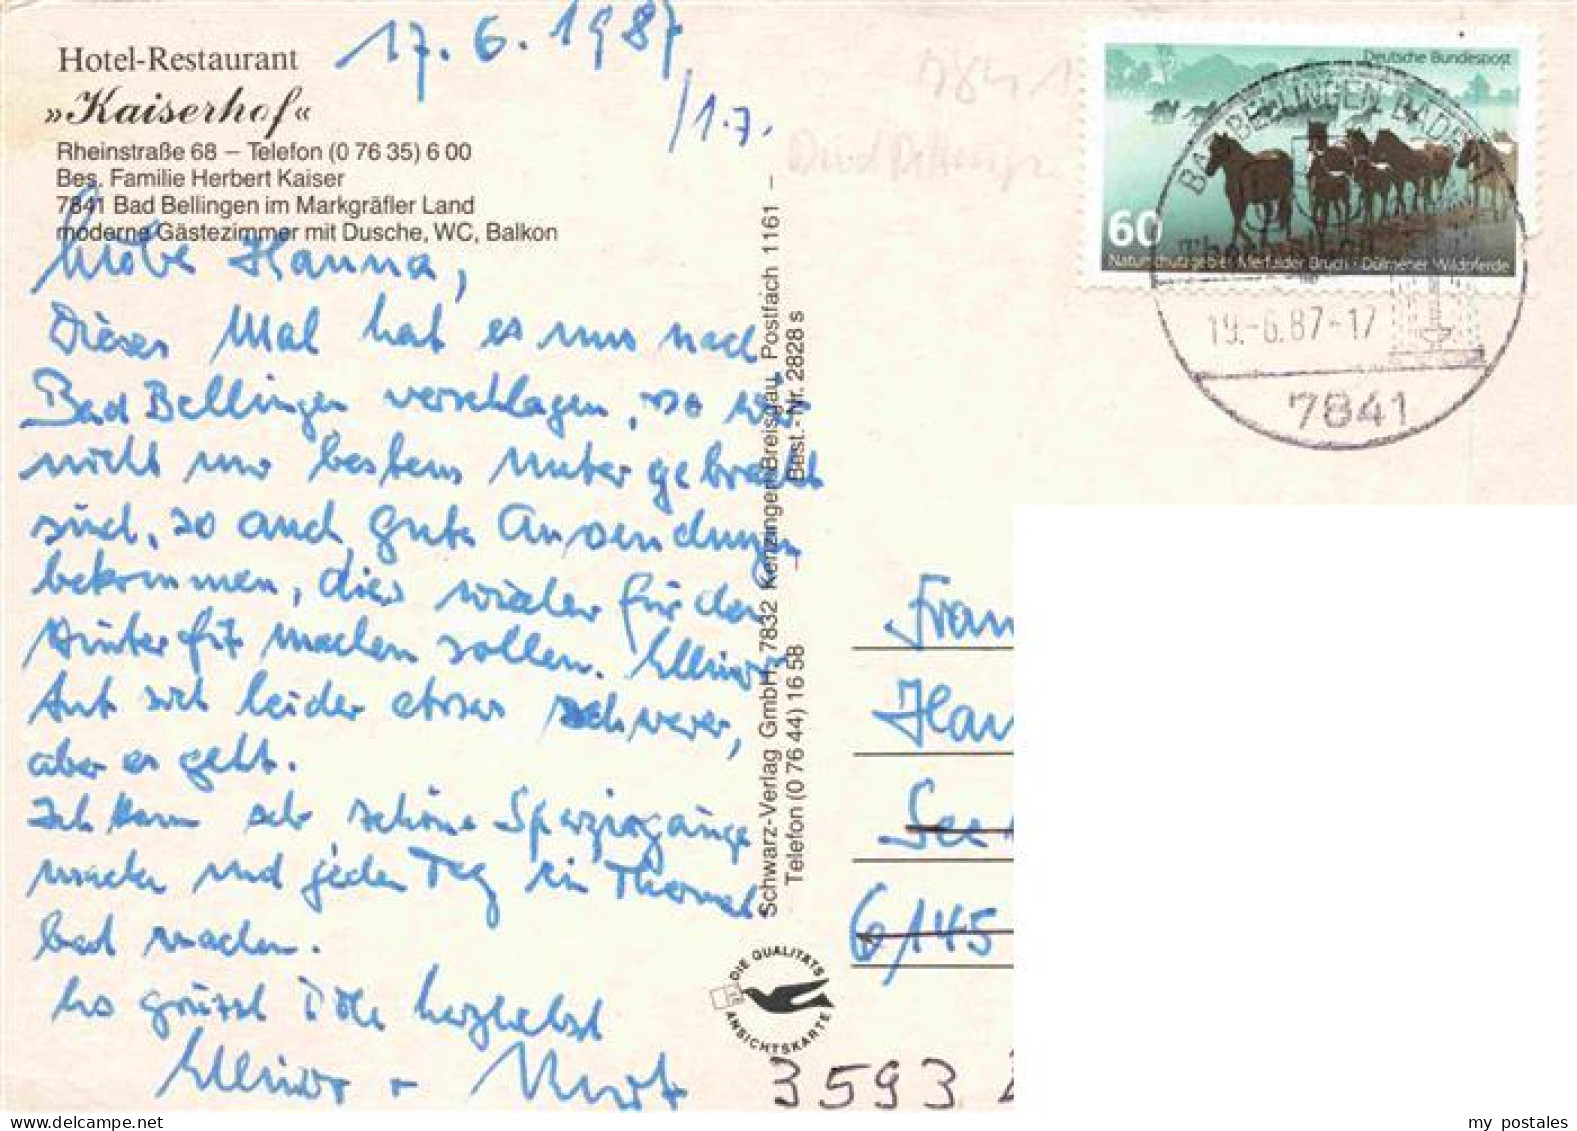 17. 6. 1987
/1.7.
Hotel-Restaurant
»Kaiserhof«
Rheinstraße 68 – Telefon (0 76 35) 6 00
Bes. Familie Herbert Kaiser
7841 Bad Bellingen im Markgräfler Land
moderne Gästezimmer mit Dusche, WC, Balkon
Liebe Hanna,
Dieses Mal hat es uns nach
Bad Bellingen verschlagen, wo wir
nicht nur bestens untergebracht
sind, so auch gute Anwendungen
bekommen, die wieder für den
Winter fit machen sollen.
tut sich leider etwas schwer,
aber es geht.
Ich kann sehr schöne Spaziergänge
machen und jeden Tag ein Thermal
bad machen.
So grüsst Dich herzlichst
+ Kurt
Schwarz-Verlag GmbH, 7832 Kenzingen/Breisgau, Postfach 1161 –
Telefon (0 76 44) 16 58 – Best.-Nr. 2828 s
DIE QUALITÄTS
ANSICHTSKARTE
Deutsche Bundespost
60
Naturschutzgebiet Merfelder Bruch · Dülmener Wildpferde
BAD BELLINGEN BADEN
19.-6.87-17
7841
7841
Frau
Han
See
6/145
3593
my postales